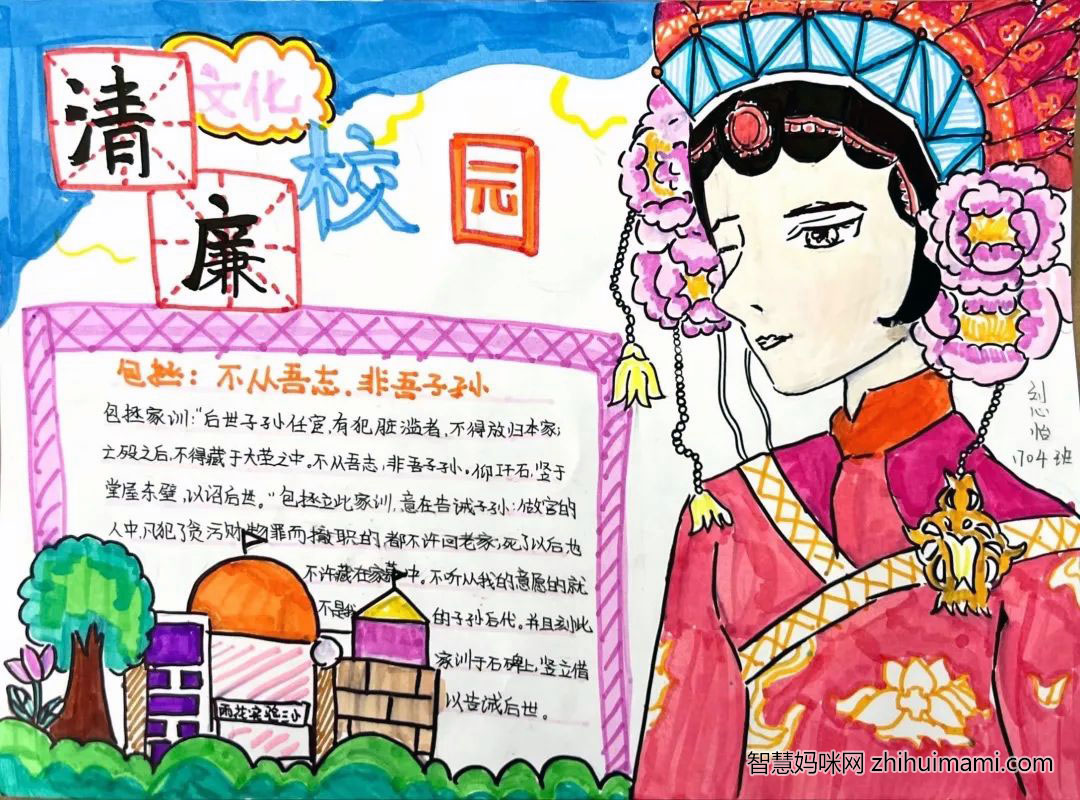 清
文化
校
园
廉
包拯:不从吾志,非吾子孙
包拯家训:“后世子孙仕宦,有犯脏滥者,不得放归本家;
亡殁之后,不得藏于大茔之中。不从吾志,非吾子孙。仰珙石,竖于
堂屋东壁,以诏后世。”包拯立此家训,意在告诫子孙:做官的
人中,凡犯了贪污财物罪而撤职的,都不许回老家;死了以后也
不许藏在家墓中。不听从我的意愿的就
不是我的子孙后代。并且刻此
家训于石碑上,竖立借
以告诫后世。
雨花实验二小
刘心怡
1704班
智慧妈咪网 zhihuimami.com